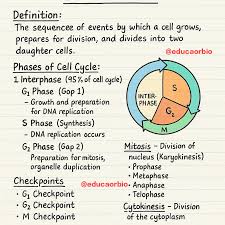 Definition:
The sequencee of events by which a cell grows,
prepares for division, and divides into two
daughter cells.
@educaorbio
Phases of Cell Cycle:
1. Interphase (95% of cell cycle)
G₁ Phase (Gap 1)
– Growth and preparation
for DNA replication
S Phase (Synthesis)
– DNA replication occurs
G₂ Phase (Gap 2)
Preparation for mitosis,
organelle duplication
INTER-
PHASE
S
G₁
M
Mitosis – Division of
nucleus (Karyokinesis)
• Prophase
• Metaphase
• Anaphase
• Telophase
Cytokinesis – Division of
the cytoplasm
@educaorbio
Checkpoints
• G₁ Checkpoint
• G₂ Checkpoint
• M Checkpoint